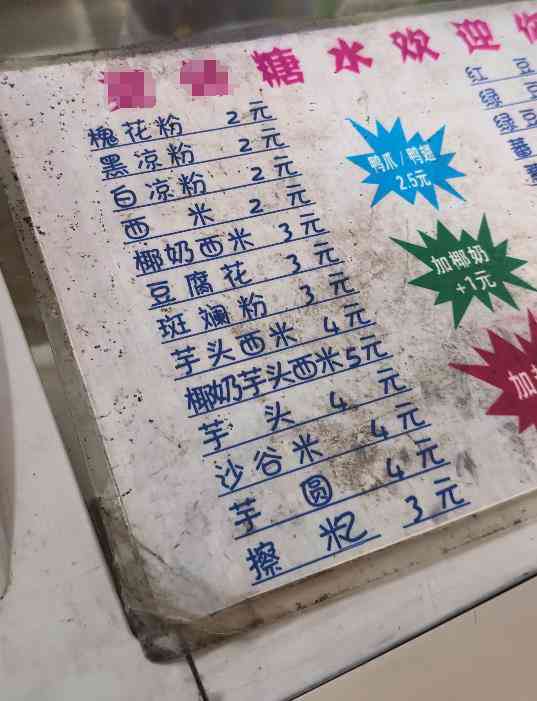 糖水欢迎你
槐花粉 2元
黑凉粉 2元
白凉粉 2元
西 米 2元
椰奶西米 3元
豆腐花 3元
斑斓粉 3元
芋头西米 4元
椰奶芋头西米5元
芋 头 4 元
沙谷米 4元
芋 圆 4元
擦 粑 3元
鸭爪/鸭翅
2.5元
加椰奶
+1元
加
红 豆
绿 豆
绿豆